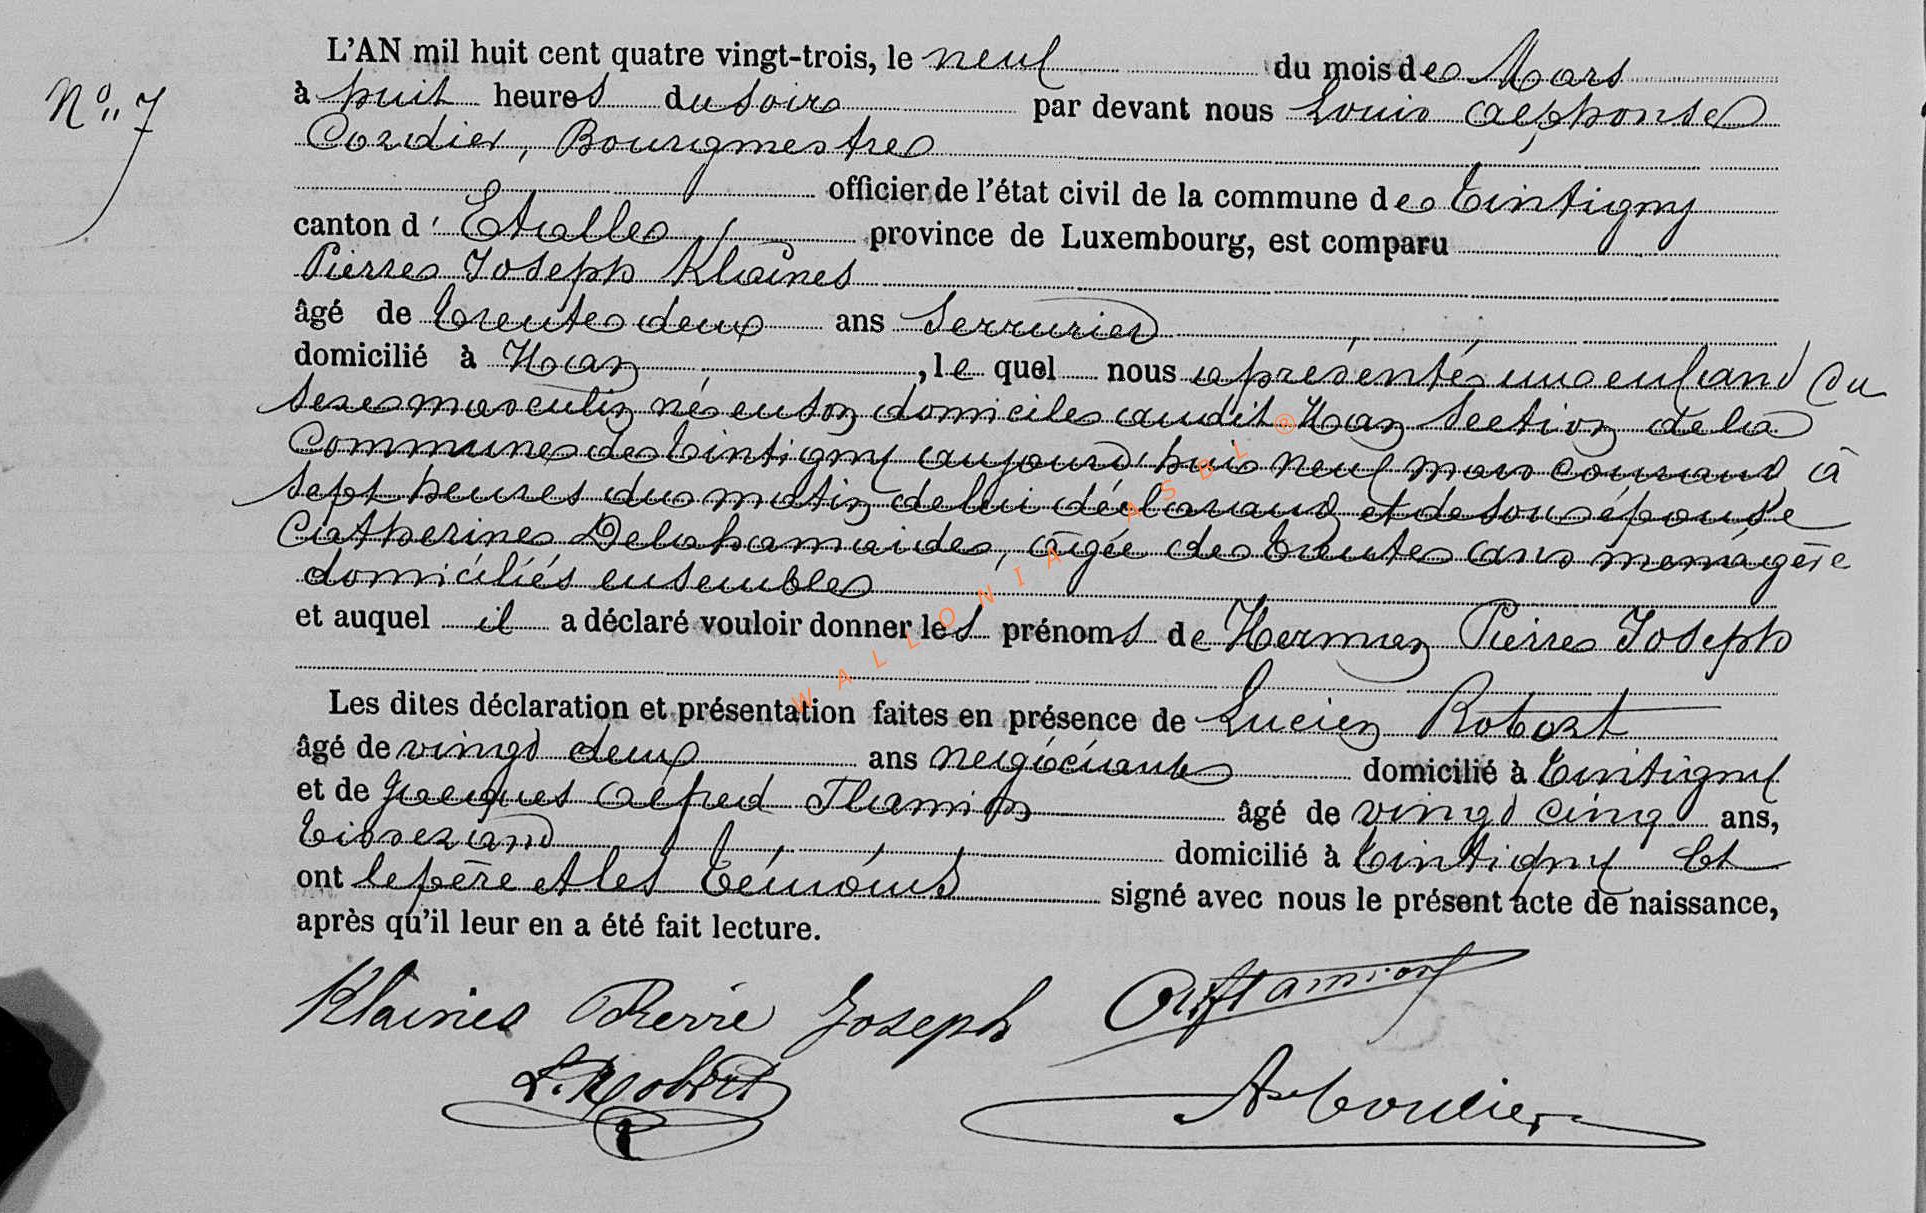 N° 7
L'AN mil huit cent quatre vingt-trois, le neuf du mois de Mars
à huit heures du soir par devant nous Louis Alphonse
Cordier, Bourgmestre
officier de l'état civil de la commune de Tintigny
canton d'Etalle, province de Luxembourg, est comparu
Pierre Joseph Klaines
âgé de trente deux ans Serrurier
domicilié à Han, le quel nous a présenté un enfant du
sexe masculin né en son domicile audit Han Section de la
Commune de Tintigny aujourd'hui neuf mars courant à
sept heures du matin de lui déclarant et de son épouse
Catherine Delahamaide, âgée de trente ans ménagère
domiciliés ensemble
et auquel il a déclaré vouloir donner les prénoms de Herman Pierre Joseph
Les dites déclaration et présentation faites en présence de Lucien Robert
âgé de vingt deux ans négociant domicilié à Tintigny
et de Jacques Alfred Flamion âgé de vingt cinq ans,
tisserand domicilié à Tintigny Et
ont le père et les témoins signé avec nous le présent acte de naissance,
après qu'il leur en a été fait lecture.
Klaines Pierre Joseph Flamion
L. Robert A. Cordier
WALLONIA ASBL ®